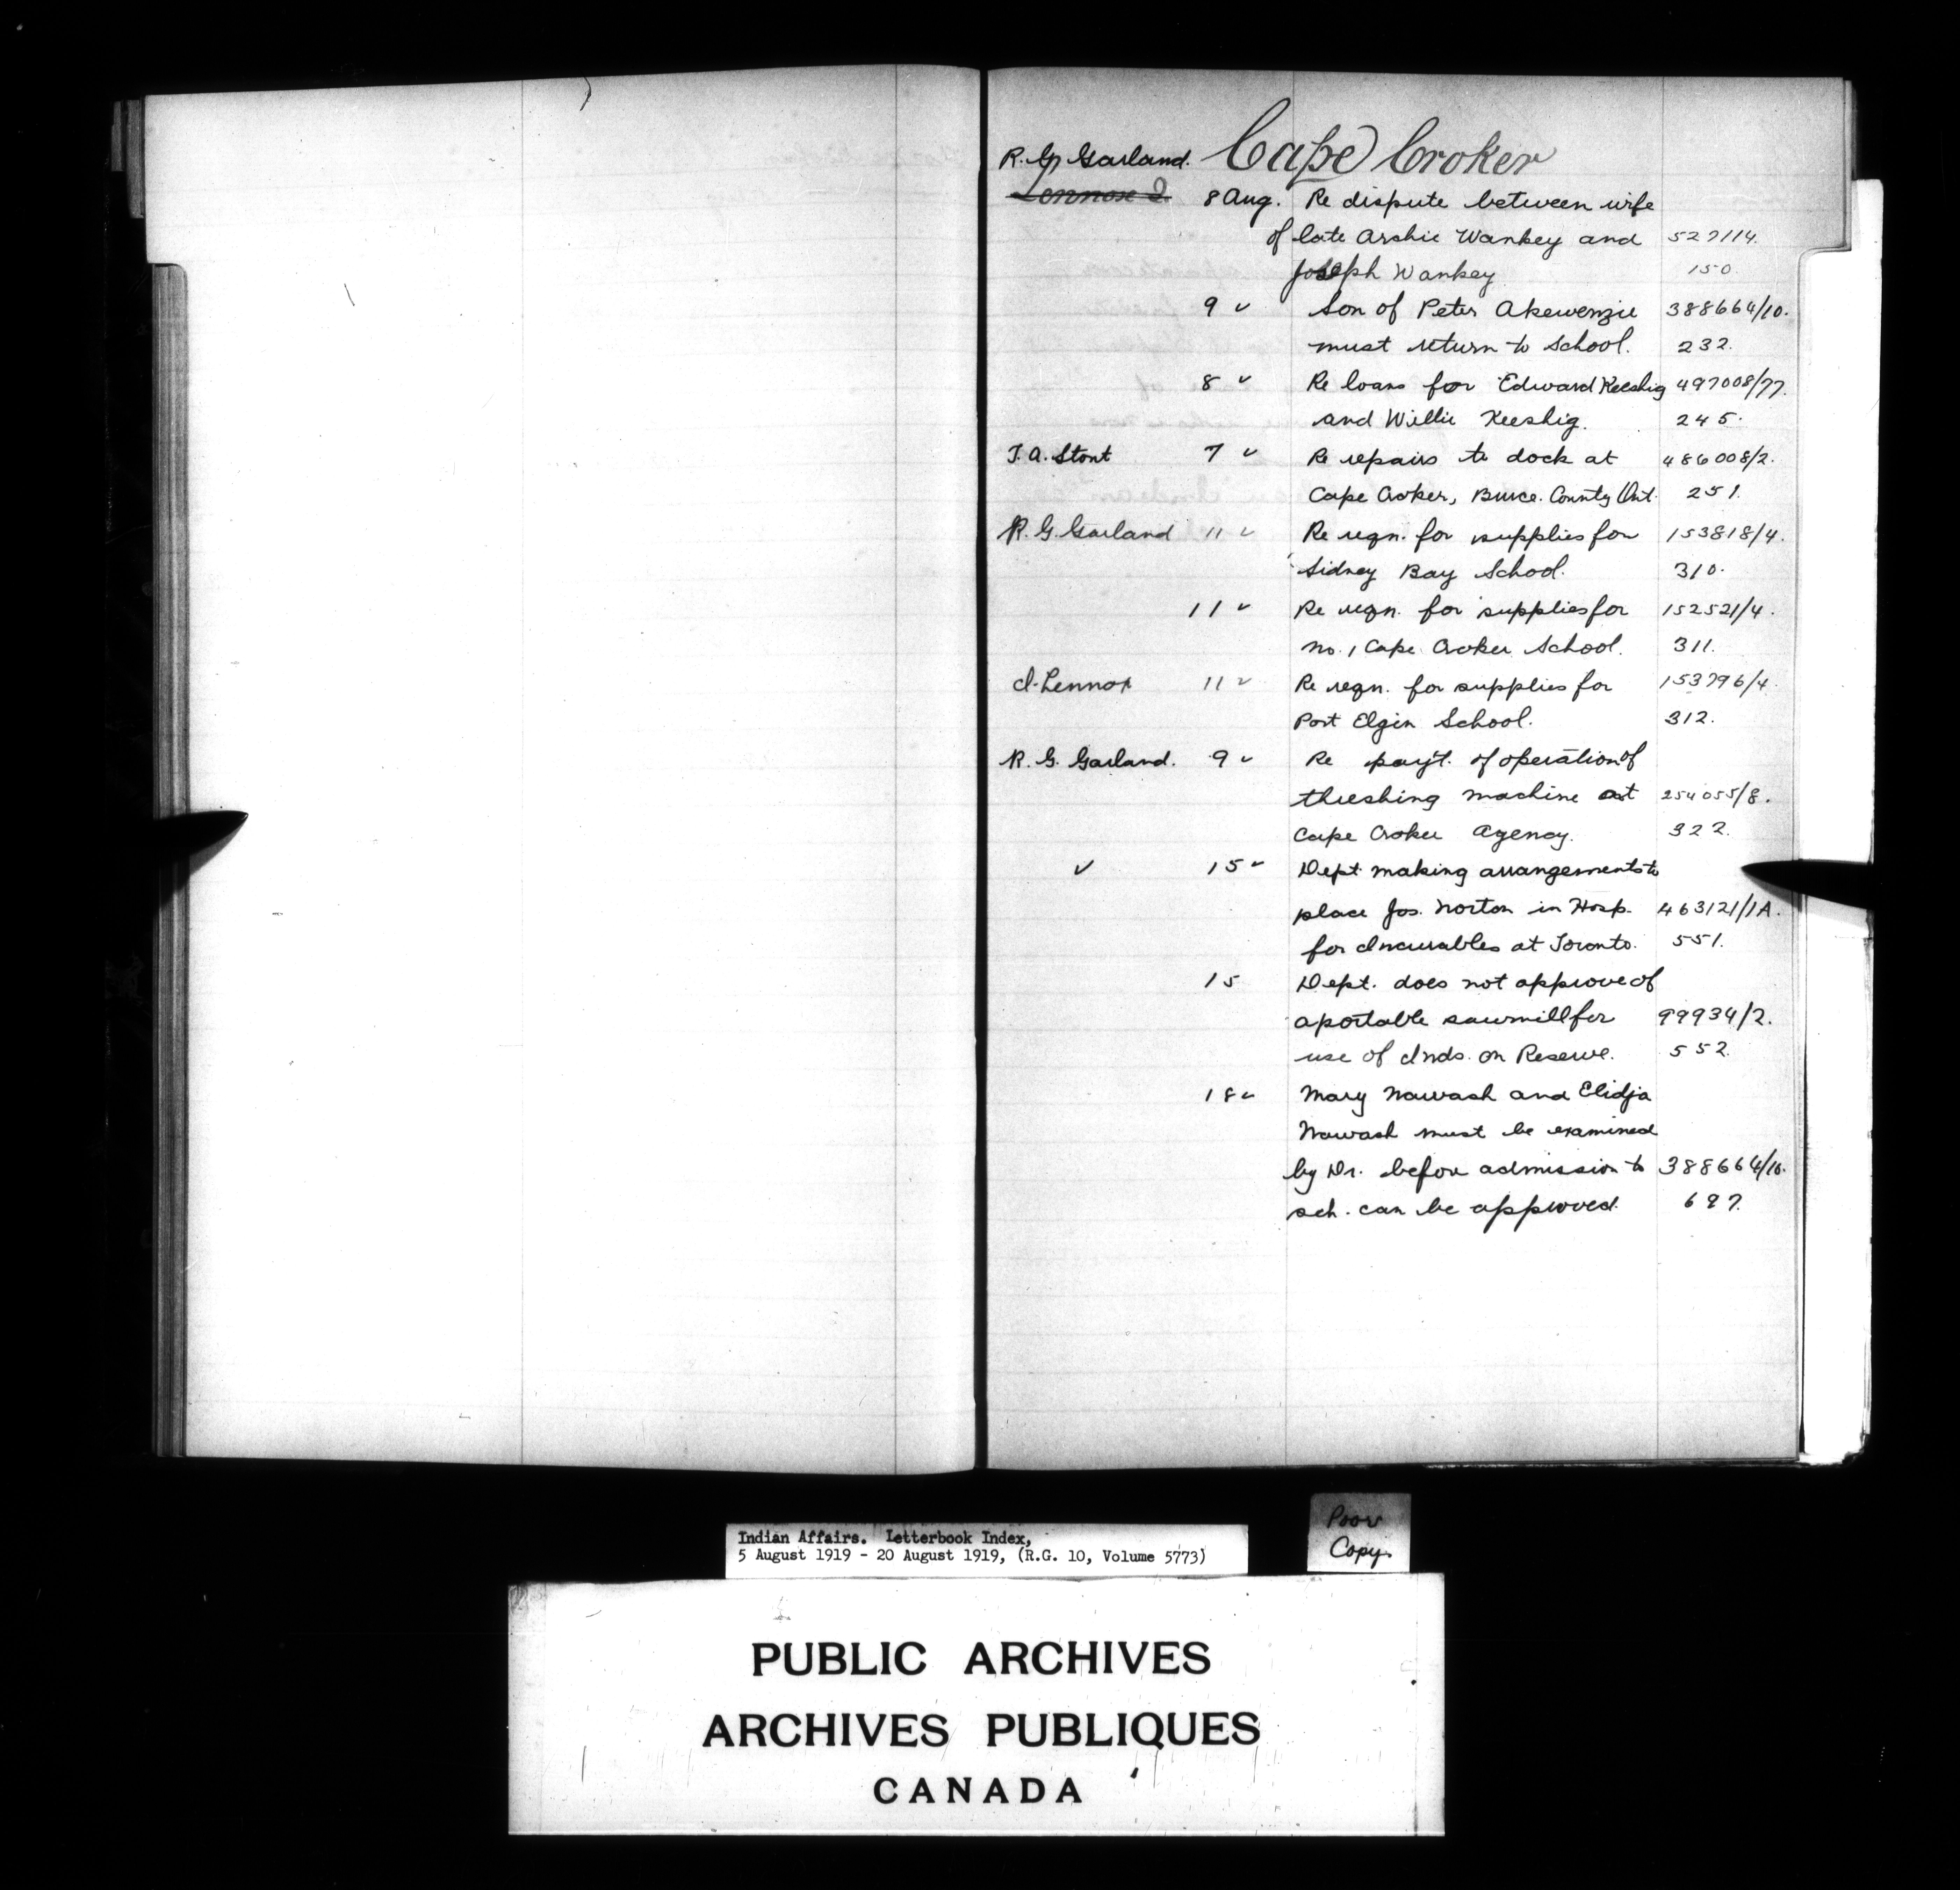 Cape Croker
R. G. Garland.
Lennox I. 8 Aug. Re dispute between wife
of late Archie Wankey and 527114.
Joseph Wankey 150.
9 " Son of Peter Akewenzie 388664/10.
must return to School. 232.
8 " Re loans for Edward Keeshig 497008/77.
and Willie Keeshig. 245.
T. A. Stout 7 " Re repairs to dock at 486008/2.
Cape Croker, Bruce County Ont. 251.
R. G. Garland 11 " Re reqn. for supplies for 153818/4.
Sidney Bay School. 310.
11 " Re reqn. for supplies for 152521/4.
No. 1 Cape Croker School. 311.
I. Lennox 11 " Re reqn. for supplies for 153796/4.
Port Elgin School. 312.
R. G. Garland. 9 " Re pay't. of operation of
threshing machine at 254055/8.
Cape Croker Agency. 322.
" 15 " Dept. making arrangements to
place Jos. Norton in Hosp. 463121/1A.
for Incurables at Toronto. 551.
15 Dept. does not approve of
a portable sawmill for 99934/2.
use of Inds. on Reserve. 552.
18 " Mary Nawash and Elidja
Nawash must be examined
by Dr. before admission to 388664/10.
sch. can be approved. 697.
Indian Affairs. Letterbook Index,
5 August 1919 - 20 August 1919, (R.G. 10, Volume 5773)
Poor
Copy.
PUBLIC ARCHIVES
ARCHIVES PUBLIQUES
CANADA